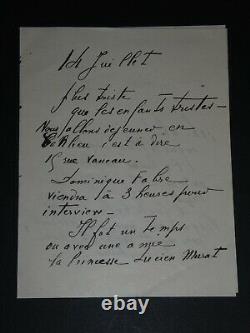 14 Juillet
plus triste
que les enfants tristes -
Nous allons déjeuner en
c'est à dire
rue Vaneau.
Dominique Fabre
viendra à 3 heures pour
interview -
Il fut un temps
ou avec une amie
la Princesse Lucien Murat
© ebluejay.com